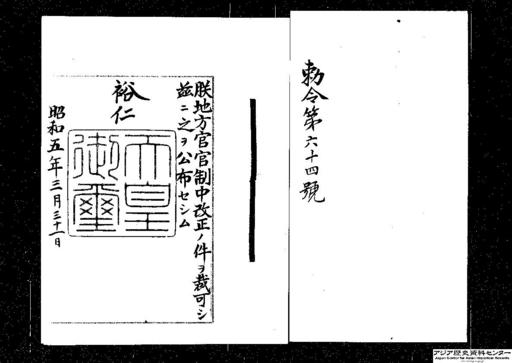 勅令第六十四號
朕地方官官制中改正ノ件ヲ裁可シ
茲ニ之ヲ公布セシム
裕仁
天皇
御璽
昭和五年三月三十一日
アジア歴史資料センター
Japan Center for Asian Historical Records